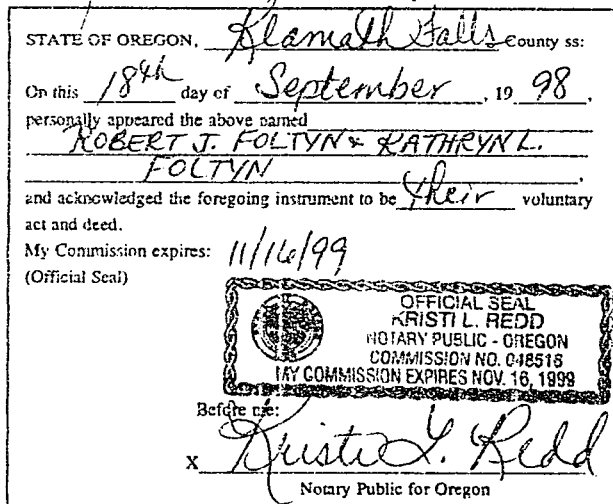 STATE OF OREGON, Klamath Falls County ss:
On this 18th day of September, 19 98,
personally appeared the above named
ROBERT J. FOLTYN & KATHRYN L.
FOLTYN,
and acknowledged the foregoing instrument to be their voluntary
act and deed.
My Commission expires: 11/16/99
(Official Seal)
OFFICIAL SEAL
KRISTI L. REDD
NOTARY PUBLIC - OREGON
COMMISSION NO. 048516
MY COMMISSION EXPIRES NOV. 16, 1999
Before me:
X Kristi L. Redd
Notary Public for Oregon